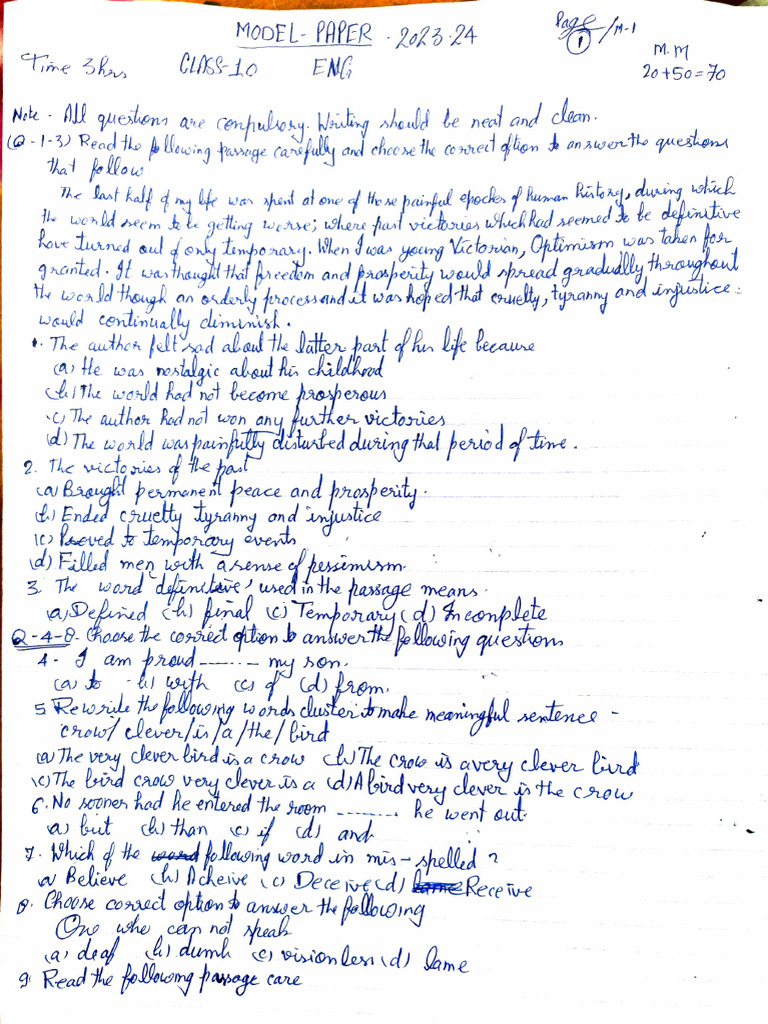 MODEL-PAPER - 2023-24
Page 1 / M-1
M.M
Time 3hrs CLASS-10 ENG
20+50=70
Note - All questions are conpulsory. Writing should be neat and clean.
(Q-1-3) Read the following passage carefully and choose the correct option to answer the questions
that follow
The last half of my life was spent at one of those painful epoches of human History, during which
the world seem to be getting worse; where past victories which had seemed to be definitive
have turned out of only temporary. When I was young Victorian, Optimism was taken for
granted. It was thought that freedom and prosperity would spread gradually throughout
the world though an orderly process and it was hoped that cruelty, tyranny and injustice
would continually diminish.
1. The author felt sad about the latter part of his life because
(a) He was nostalgic about his childhood
(b) The world had not become prosperous
(c) The author had not won any further victories
(d) The world was painfully disturbed during that period of time.
2. The victories of the past
(a) Brought permanent peace and prosperity.
(b) Ended cruelty tyranny and injustice
(c) Proved to temporary events
(d) Filled men with a sense of pessimism.
3. The word definitive, used in the passage means.
(a) Defined (b) final (c) Temporary (d) Incomplete
Q-4-8- Choose the correct option to answer the following questions
4- I am proud ....... my son.
(a) to (b) with (c) of (d) from.
5 Rewrite the following words cluster to make meaningful sentence -
crow/ clever/is/a/the/bird
(a) The very clever bird is a crow (b) The crow is a very clever bird
(c) The bird crow very clever is a (d) A bird very clever is the crow
6. No sooner had he entered the room ........ he went out.
a) but (b) than (c) if (d) and
7. Which of the following word in mis-spelled ?
a) Believe (b) Acheive (c) Deceive (d) Receive
8. Choose correct option to answer the following
One who can not speak
(a) deaf (b) dumb (c) visionless (d) lame
9 Read the following passage care